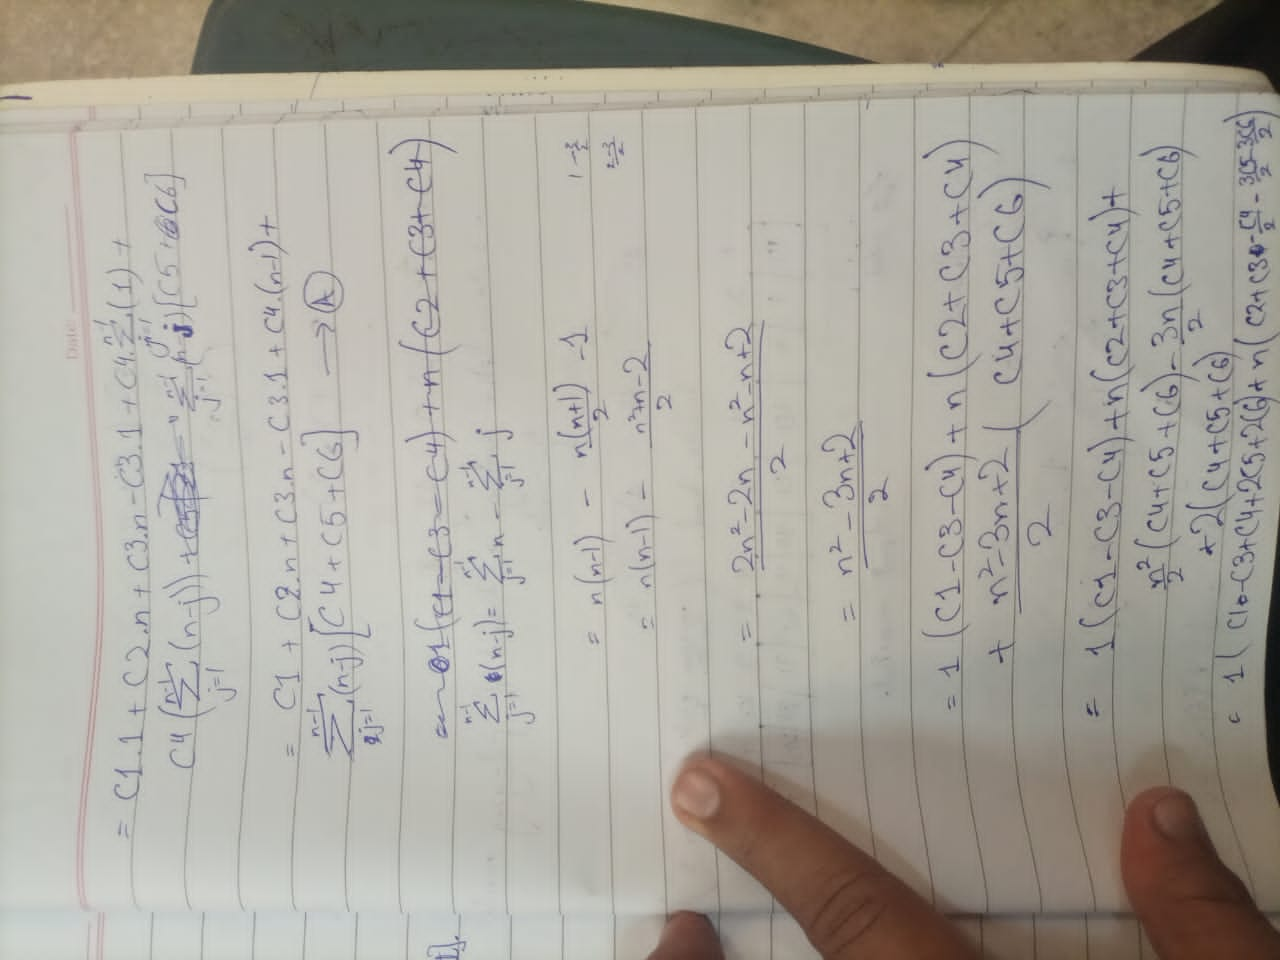 Date:
= C1.1 + C2.n + C3.n - C3.1 + C4.∑_{j=1}^{n-1}(1) +
C4(∑_{j=1}^{n-1}(n-j)) + ∑_{j=1}^{n-1}(n-j)[C5+C6]
= C1 + C2.n + C3.n - C3.1 + C4.(n-1) +
∑_{j=1}^{n-1}(n-j)[C4+C5+C6] → (A)
1(C1-C3-C4)+n(C2+C3+C4)
∑_{j=1}^{n-1}(n-j) = ∑_{j=1}^{n-1} n - ∑_{j=1}^{n-1} j
= n(n-1) - n(n+1)/2 - 1
1-3/2
= n(n-1) - n²+n-2/2
= 2n²-2n-n²-n+2/2
= n²-3n+2/2
= 1(C1-C3-C4)+n(C2+C3+C4)
+ n²-3n+2/2 (C4+C5+C6)
= 1(C1-C3-C4)+n(C2+C3+C4)+
n²/2(C4+C5+C6)-3n/2(C4+C5+C6)
+2(C4+C5+C6)/2
= 1(C1-C3+C4+2C5+2C6)+n(C2+C3-C4/2-3C5/2-3C6/2)